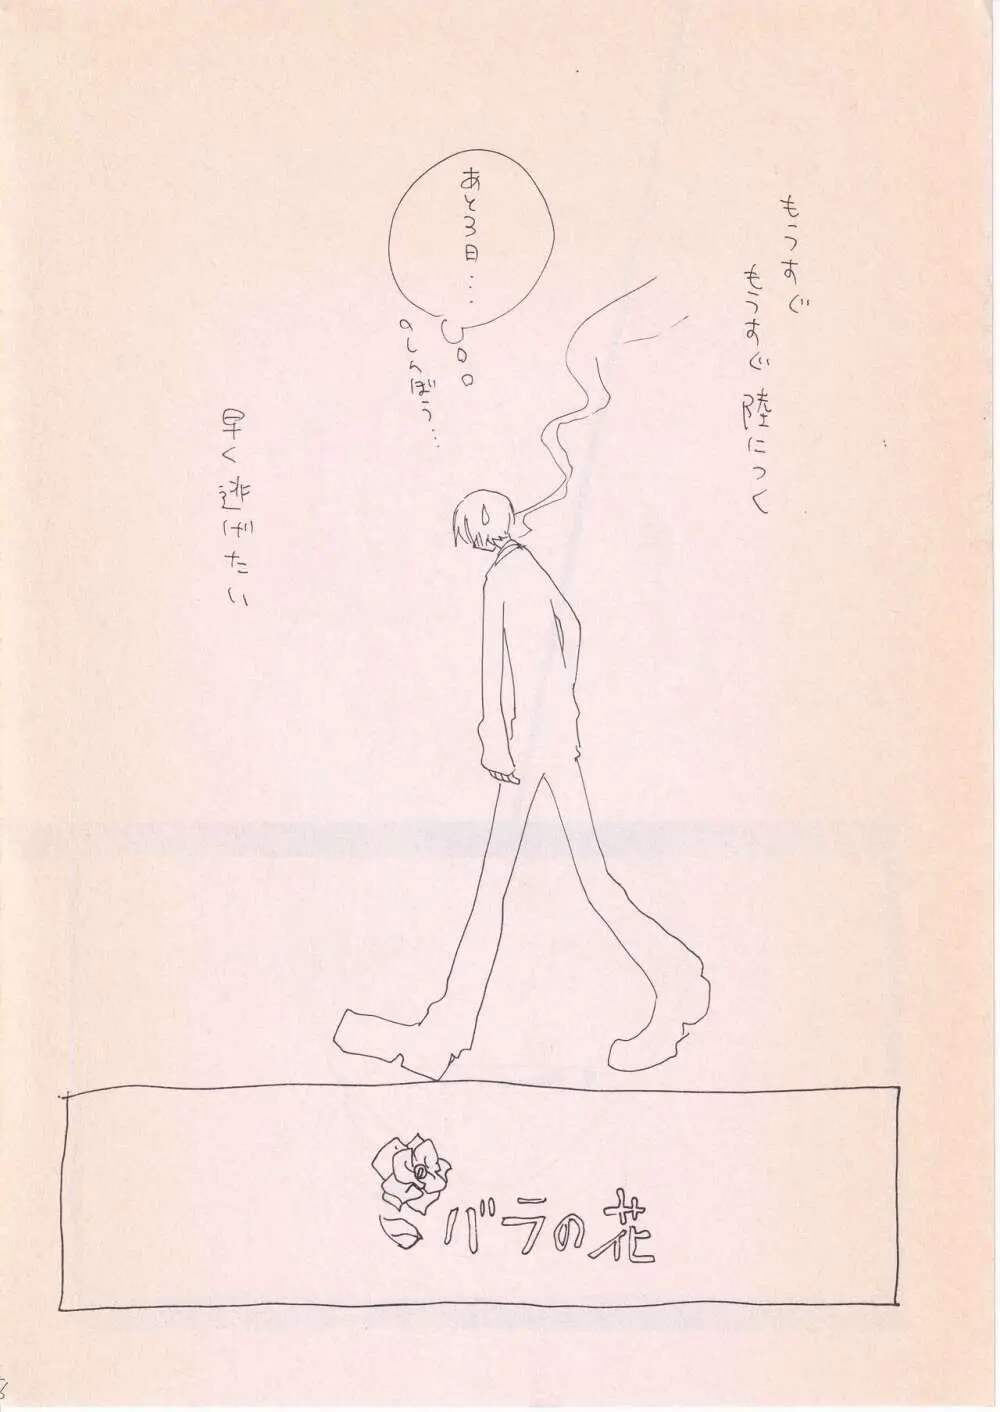 もうすぐ
もうすぐ陸につく
あと3日...
のしんぼう...
早く逃げたい
バラの花